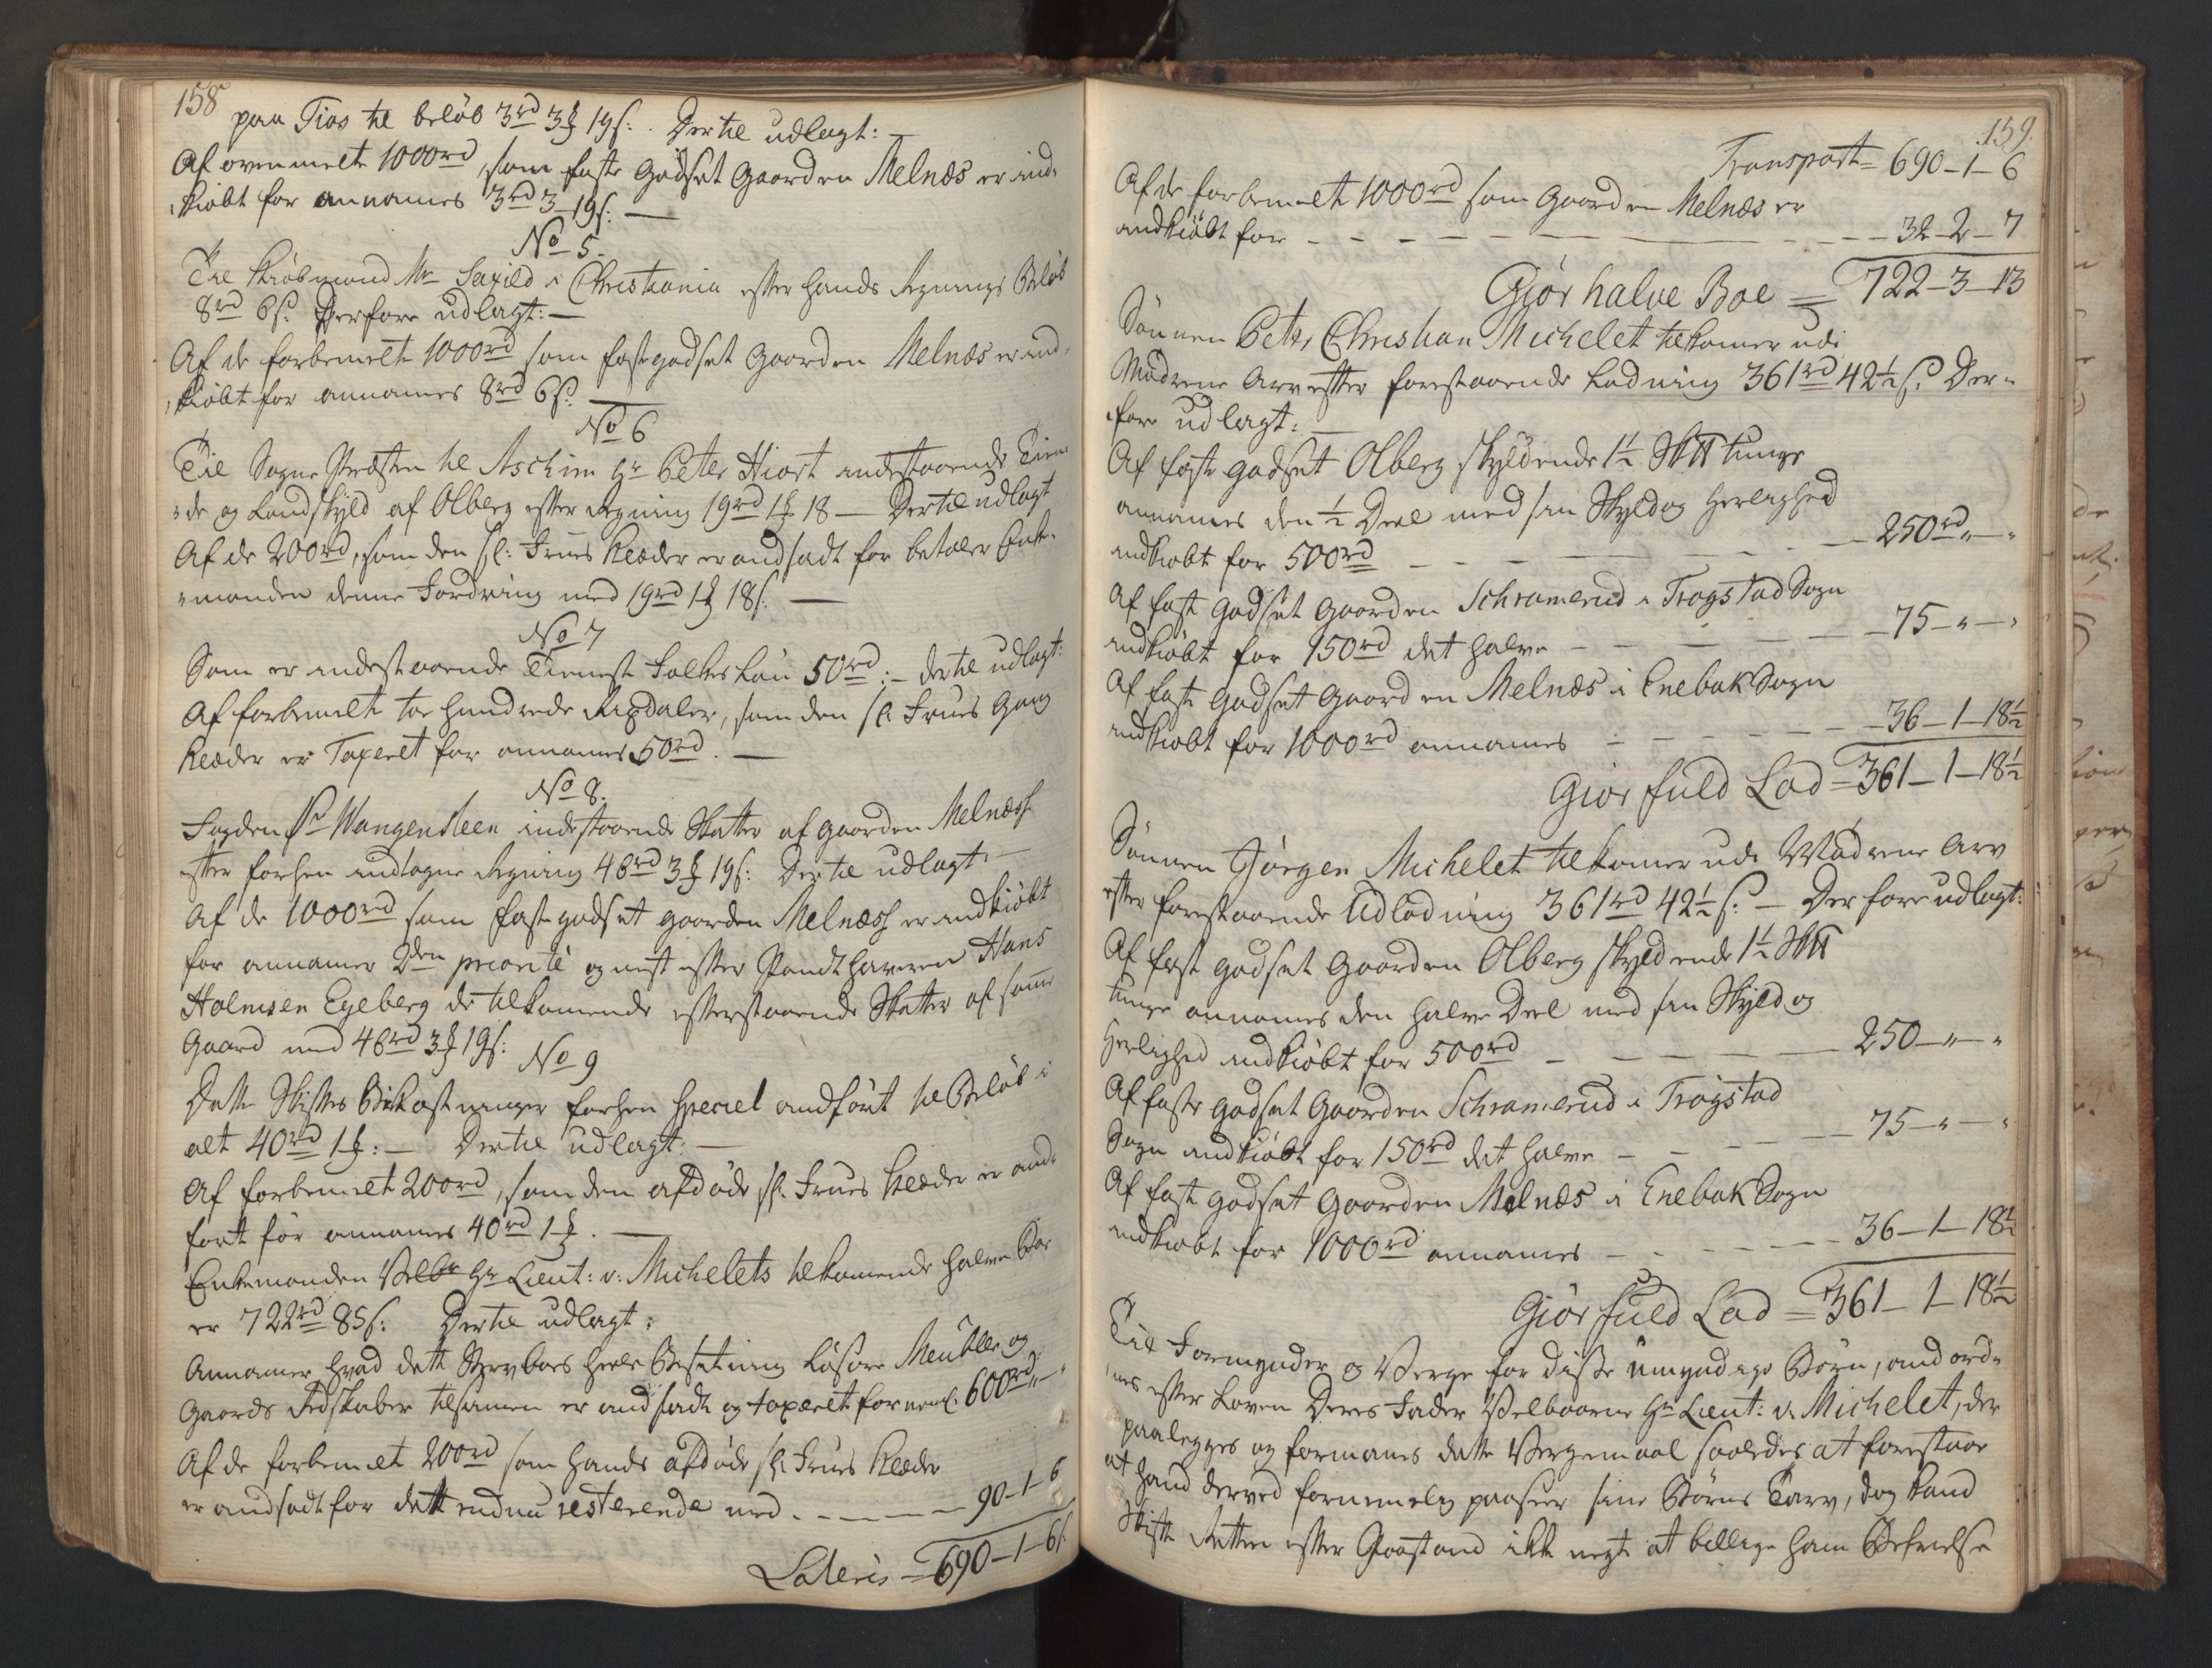 158
paa Tios til beløb 3rd 3ß 19s: Der til udlagt:
Af ovenmelte 1000rd, som faste Godset Gaarden Melnæs er ind-
kiøbt for annames 3rd 3 - 19s: —
No 5.
Til Kiøbmand Mr Saxild i Christiania efter hands Regnings Beløb
8rd 6s. Derfore udlagt: —
Af de forbemelte 1000rd som faste godset Gaarden Melnæs er ind-
kiøbt for annames 8rd 6s. —
No 6
Til Sogne Præsten til Aschim Hr Peter Hiort indestaaende Tien-
de og Landskyld af Olberg efter Regning 19rd 1ß 18 — Der til udlagt
Af de 200rd, som den sl: Frues Klæder er andsadt for betaler Enke-
manden denne Fordring med 19rd 1ß 18s. —
No 7
Som er indestaaende Tieneste Folkes Løn 50rd: — der til udlagt:
Af forbemelte toe hundrede Rigsdaler, som den sl: Frues Gang
Klæder er Taxeret for annames 50rd. —
No 8.
Fogden Sr Wangensteen indestaaende Skatter af Gaarden Melnæss
efter forhen indtagne Regning 48rd 3ß 19s: Der til udlagt: —
Af de 1000rd som faste godset Gaarden Melnæss er indkiøbt
for annamer 2den priorité og nest efter Pandthaveren Hans
Holmsen Egeberg de tilkommende efterstaaende Skatter af samme
Gaard med 48rd 3ß 19s:
No 9
Dette Skiftes Bekostninger forhen Speciel andført til Beløb i
alt 40rd 1ß: — Der til udlagt: —
Af forbemelt 200rd, som den afdøde sl: Frues Klæder er and-
ført for annames 40rd 1ß. —
Enkemanden Velbr Hr Lieut: v: Michelets tilkommende halve Boe
er 722rd 85s: Der til udlagt:
Annamer hvad dette Sterboes heele Besetning Løsøre Meubler og
Gaards Redskaber tilsamen er andsadt og taxeret for neml: 600rd „ — „
Af de forbemelt 200rd som hands afdøde sl: Frues Klæder
er andsadt for dett endnu resterende med - - - 90 - 1 - 6
Lateris = 690 - 1 - 6s.
159.
Transport = 690 - 1 - 6
Af de forbemelt 1000rd som Gaarden Melnæs er
indkiøbt for - - - - 32 - 2 - 7
Giør halve Boe = 722 - 3 - 13
Sønnen Peter Christian Michelet tilkomer udi
Mødrene Arv efter forestaaende Lodning 361rd 42½s. Der-
fore udlagt: —
Af faste godset Olberg skyldende 1½ Sk℔ tunge
annames den ½ Deel med sin Skyld og Herlighed
indkiøbt for 500rd - - - 250rd „ — „
Af faste godset Gaarden Schramerud i Trøgstad Sogn
indkiøbt for 150rd det halve - - - 75 — „ — „
Af faste godset Gaarden Melnæs i Enebak Sogn
indkiøbt for 1000rd annames - - - 36 - 1 - 18½
Giør fuld Lod = 361 - 1 - 18½
Sønnen Jørgen Michelet tilkomer udi Mødrene Arv
efter forestaaende Udlodning 361rd 42½s. — Derfore udlagt:
Af faste godset Gaarden Olberg skyldende 1½ Sk℔
tunge annames den halve Deel med sin Skyld og
Herlighed indkiøbt for 500rd - - - 250 — „ — „
Af faste godset Gaarden Schramerud i Trøgstad
Sogn indkiøbt for 150rd det halve - - - 75 — „ — „
Af faste godset Gaarden Melnæs i Enebak Sogn
indkiøbt for 1000rd annames - - - 36 - 1 - 18½
Giør fuld Lod = 361 - 1 - 18½
Til Formynder og Verge for disse umyndige Børn, andord-
nes efter Loven Deres Fader Velbaarne Hr Lieut: v. Michelet, der
paalegges og formanes dette Vergemaal saaledes at forestaae
at hand derved fornemelig paaseer sine Børns Tarv, dog kand
Skifte Retten efter Paastand ikke negte at billige ham Befrielse